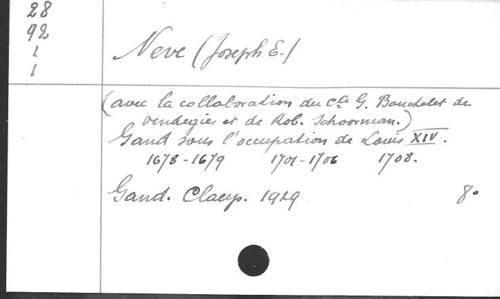 28
92
1
1
Neve (Joseph E.)
(avec la collaboration du Cte G. Bouchelet de
Vendegies et de Rob. Schoorman.)
Gand sous l'occupation de Louis XIV.
1678-1679 1701-1706 1708.
Gand. Claeys. 1929 8º